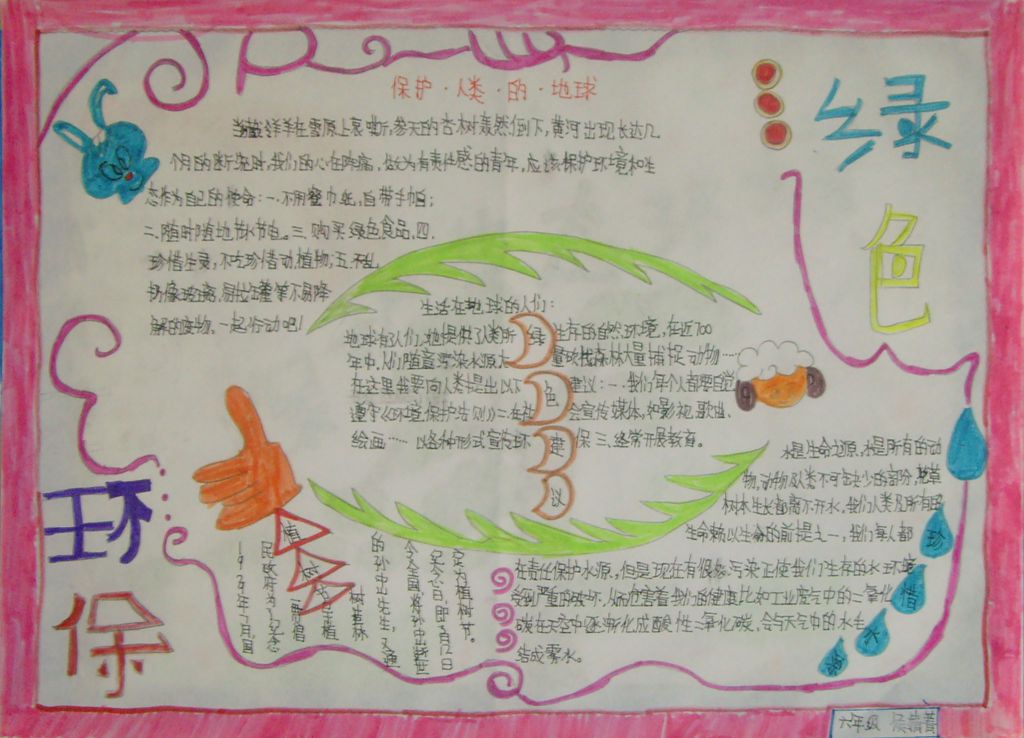 绿色
环保
保护·人类·的·地球
当藏羚羊在雪原上哀嘶,参天的古树轰然倒下,黄河出现长达几
个月的断流时,我们的心在阵痛,做为有责任感的青年,应该保护环境和生
态作为自己的使命:一.不用餐巾纸,自带手帕;
二.随时随地节水节电。三.购买绿色食品.四.
珍惜生灵,不吃珍惜动植物;五.不乱
扔像玻璃,易拉罐等不易降
解的废物,一起行动吧!
绿色建议
生活在地球的人们:
地球有人们,她提供了人类所生存的自然环境,在近700
年中,人们随意污染水源,大量砍伐森林大量捕捉动物……
在这里我要向人类提出以下建议:一.我们每个人都要自觉
遵守《环境保护法则》二.在社会宣传媒体,和影视.歌曲.
绘画……以各种形式宣传环保 三.经常开展教育。
植树
定为植树节。
纪念日,即3月12日
念全国,将孙中山逝世
的孙中山先生,又通
植树造林
民政府为了纪念
珍惜水
水是生命之源,水是所有的动
物,动物及人类不可缺少的部分,花草
树木生长都离不开水,我们人类及所有的
生命赖以生命的前提之一,我们每人都
在责任保护水源.,但是现在有很您.污染正使我们生存的水环境
受到严重的破坏.从而危害着我们的健康比如工业废气中的二氧化
碳在天空中逐渐化成酸性二氧化碳,会与天气中的水生
结成雾水。
六年级